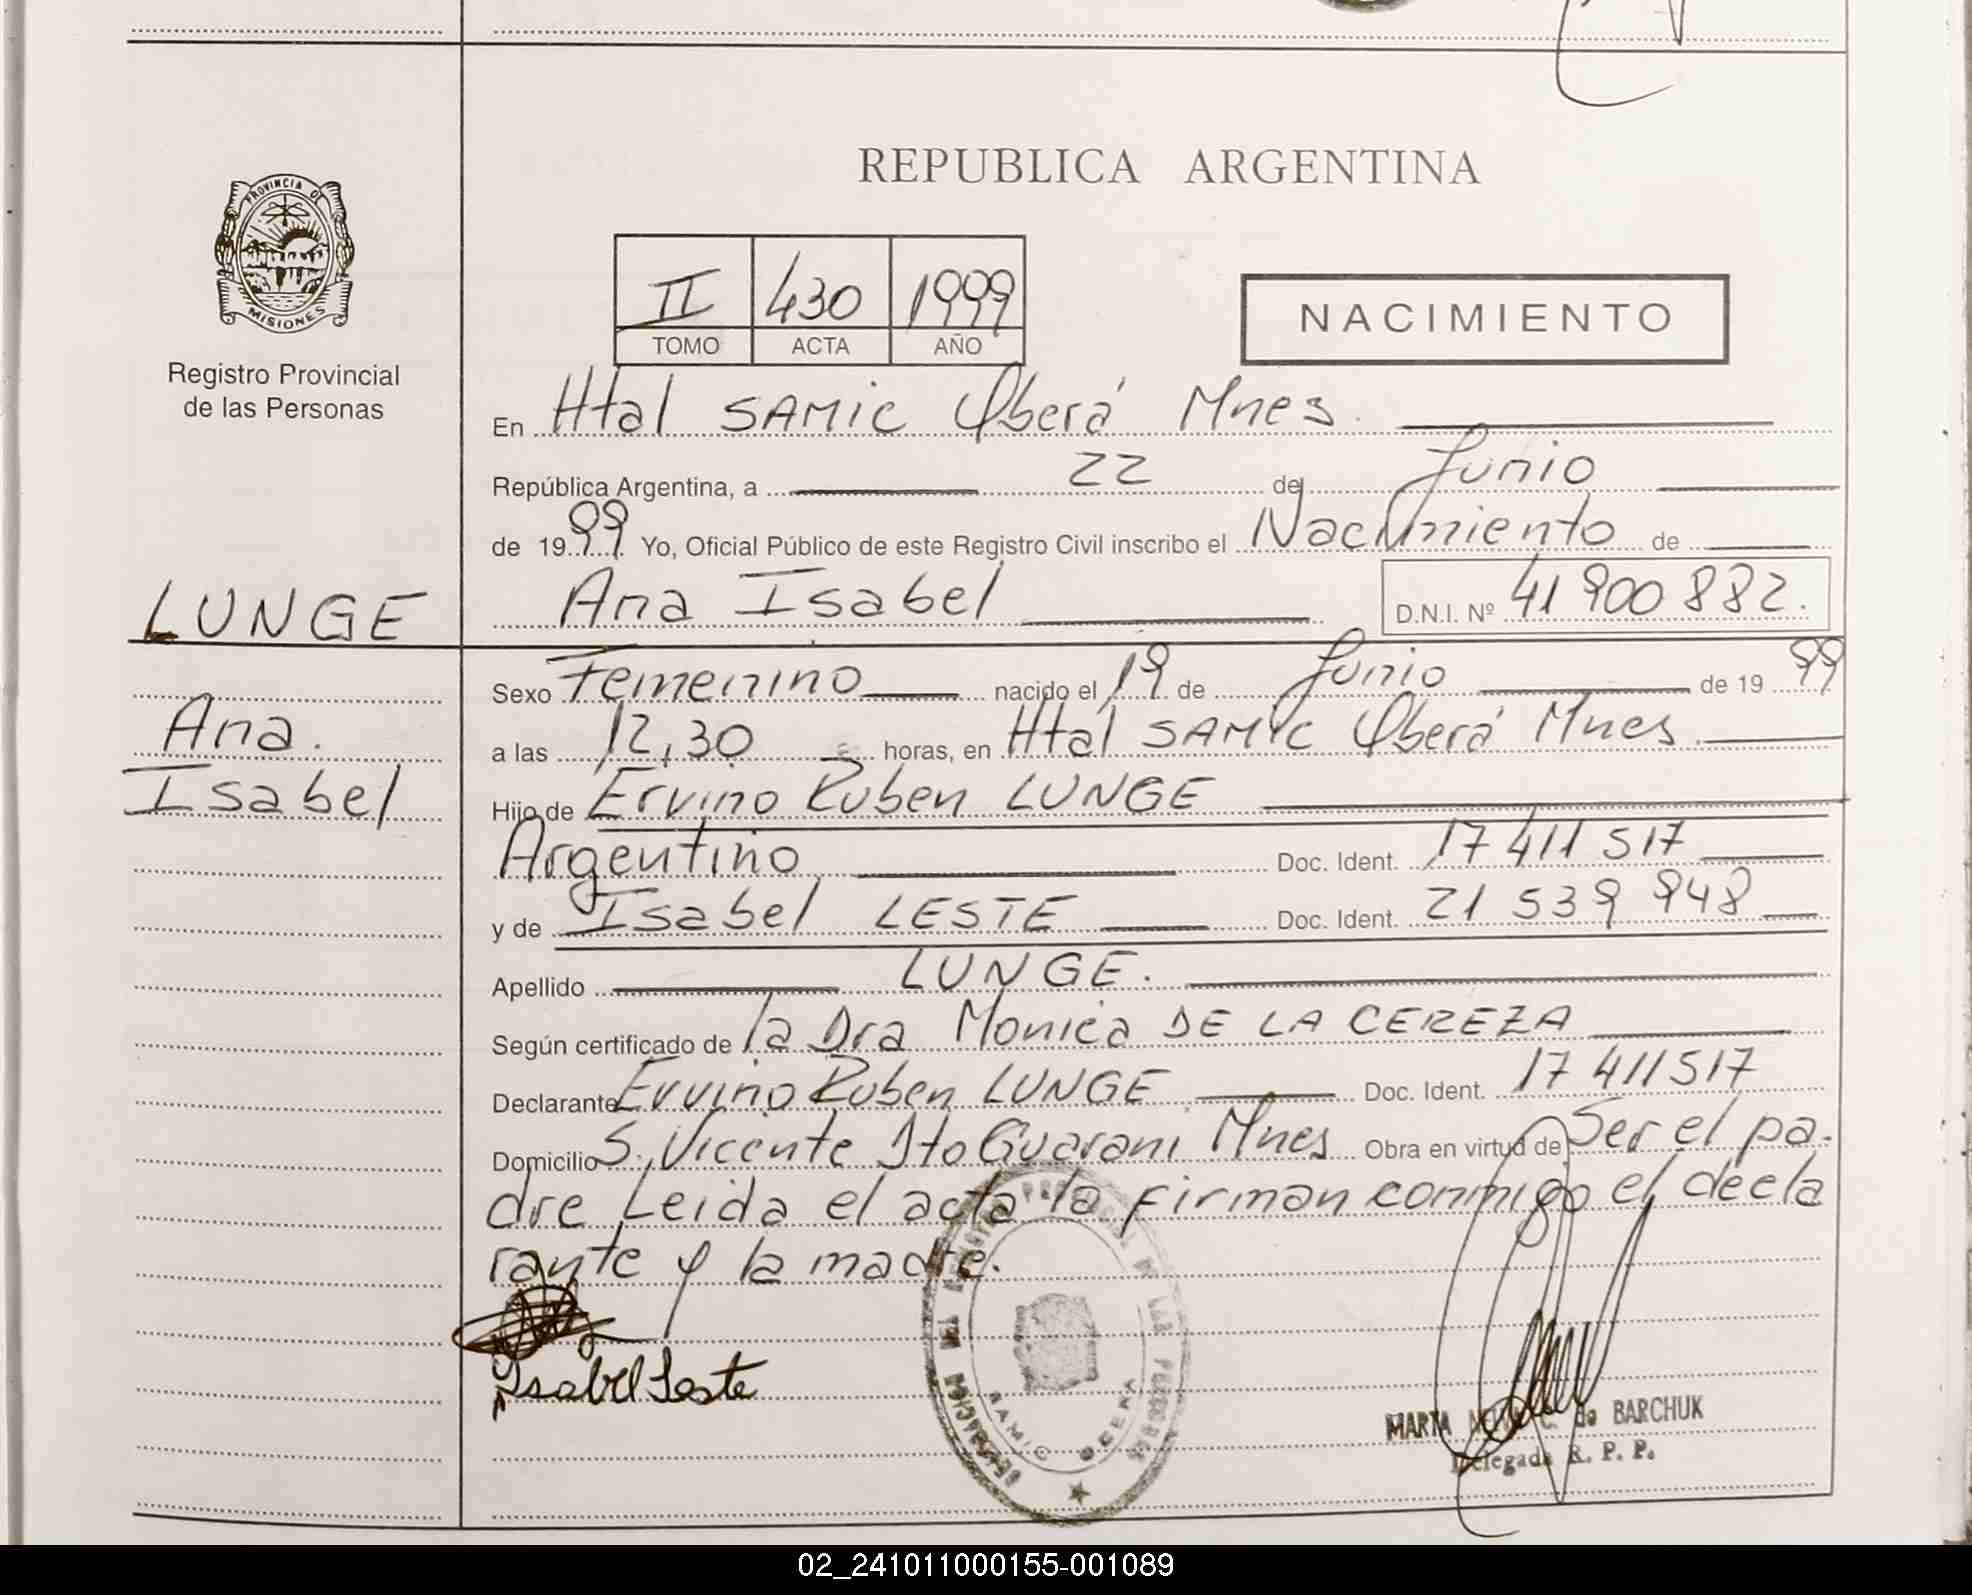 REPUBLICA ARGENTINA
PROVINCIA DE
MISIONES
Registro Provincial
de las Personas
II 430 1999
TOMO ACTA AÑO
NACIMIENTO
En Htal SAMIC Oberá Mnes.
República Argentina, a 22 de Junio
de 1999 Yo, Oficial Público de este Registro Civil inscribo el Nacimiento de
LUNGE
Ana Isabel D.N.I. Nº 41 900 882.
Ana.
Isabel
Sexo Femenino nacido el 19 de Junio de 19 99
a las 12,30 horas, en Htal SAMIC Oberá Mnes.
Hijo de Ervino Ruben LUNGE
Argentino Doc. Ident. 17 411 517
y de Isabel LESTE Doc. Ident. 21 539 948
Apellido LUNGE.
Según certificado de la Dra Monica DE LA CEREZA
Declarante Ervino Ruben LUNGE Doc. Ident. 17 411517
Domicilio S. Vicente Dto Guarani Mnes Obra en virtud de Ser el pa-
dre Leida el acta la firman conmigo el decla
rante y la madre.
Isabel Leste
DELEGACION DEL REGISTRO PROVINCIAL DE LAS PERSONAS
SAMIC OBERA
MARTA C. de BARCHUK
Delegada R. P. P.
02_241011000155-001089